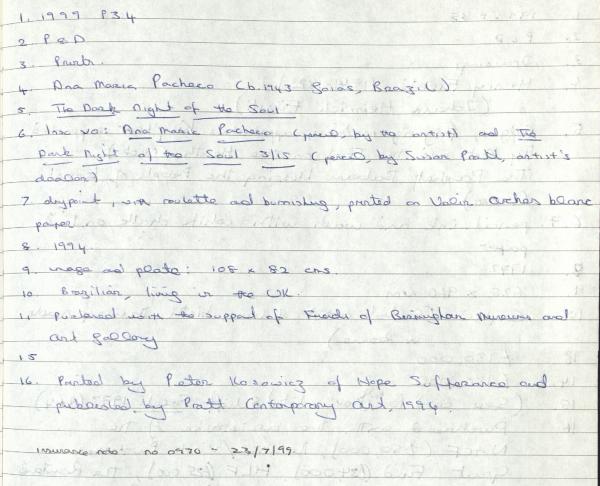 1. 1999 P34
2 P & D
3. Prints.
4. Ana Maria Pacheco (b.1943 Goias, Brazil).
5. The Dark Night of the Soul
6. Insc vo: Ana Maria Pacheco (pencil, by the artist) and The
Dark Night of the Soul 3/15 (pencil, by Susan Pratt, artist's
dealer)
7. drypoint, with roulette and burnishing, printed on Velin Arches blanc
paper
8. 1994.
9. image and plate: 108 x 82 cms.
10. Brazilian, living in the UK.
11. Purchased with the support of Friends of Birmingham Museums and
Art Gallery
15
16. Printed by Peter Kosowicz of Hope Sufferance and
published by Pratt Contemporary Art, 1994.
Insurance note: no 0970 - 23/7/99.